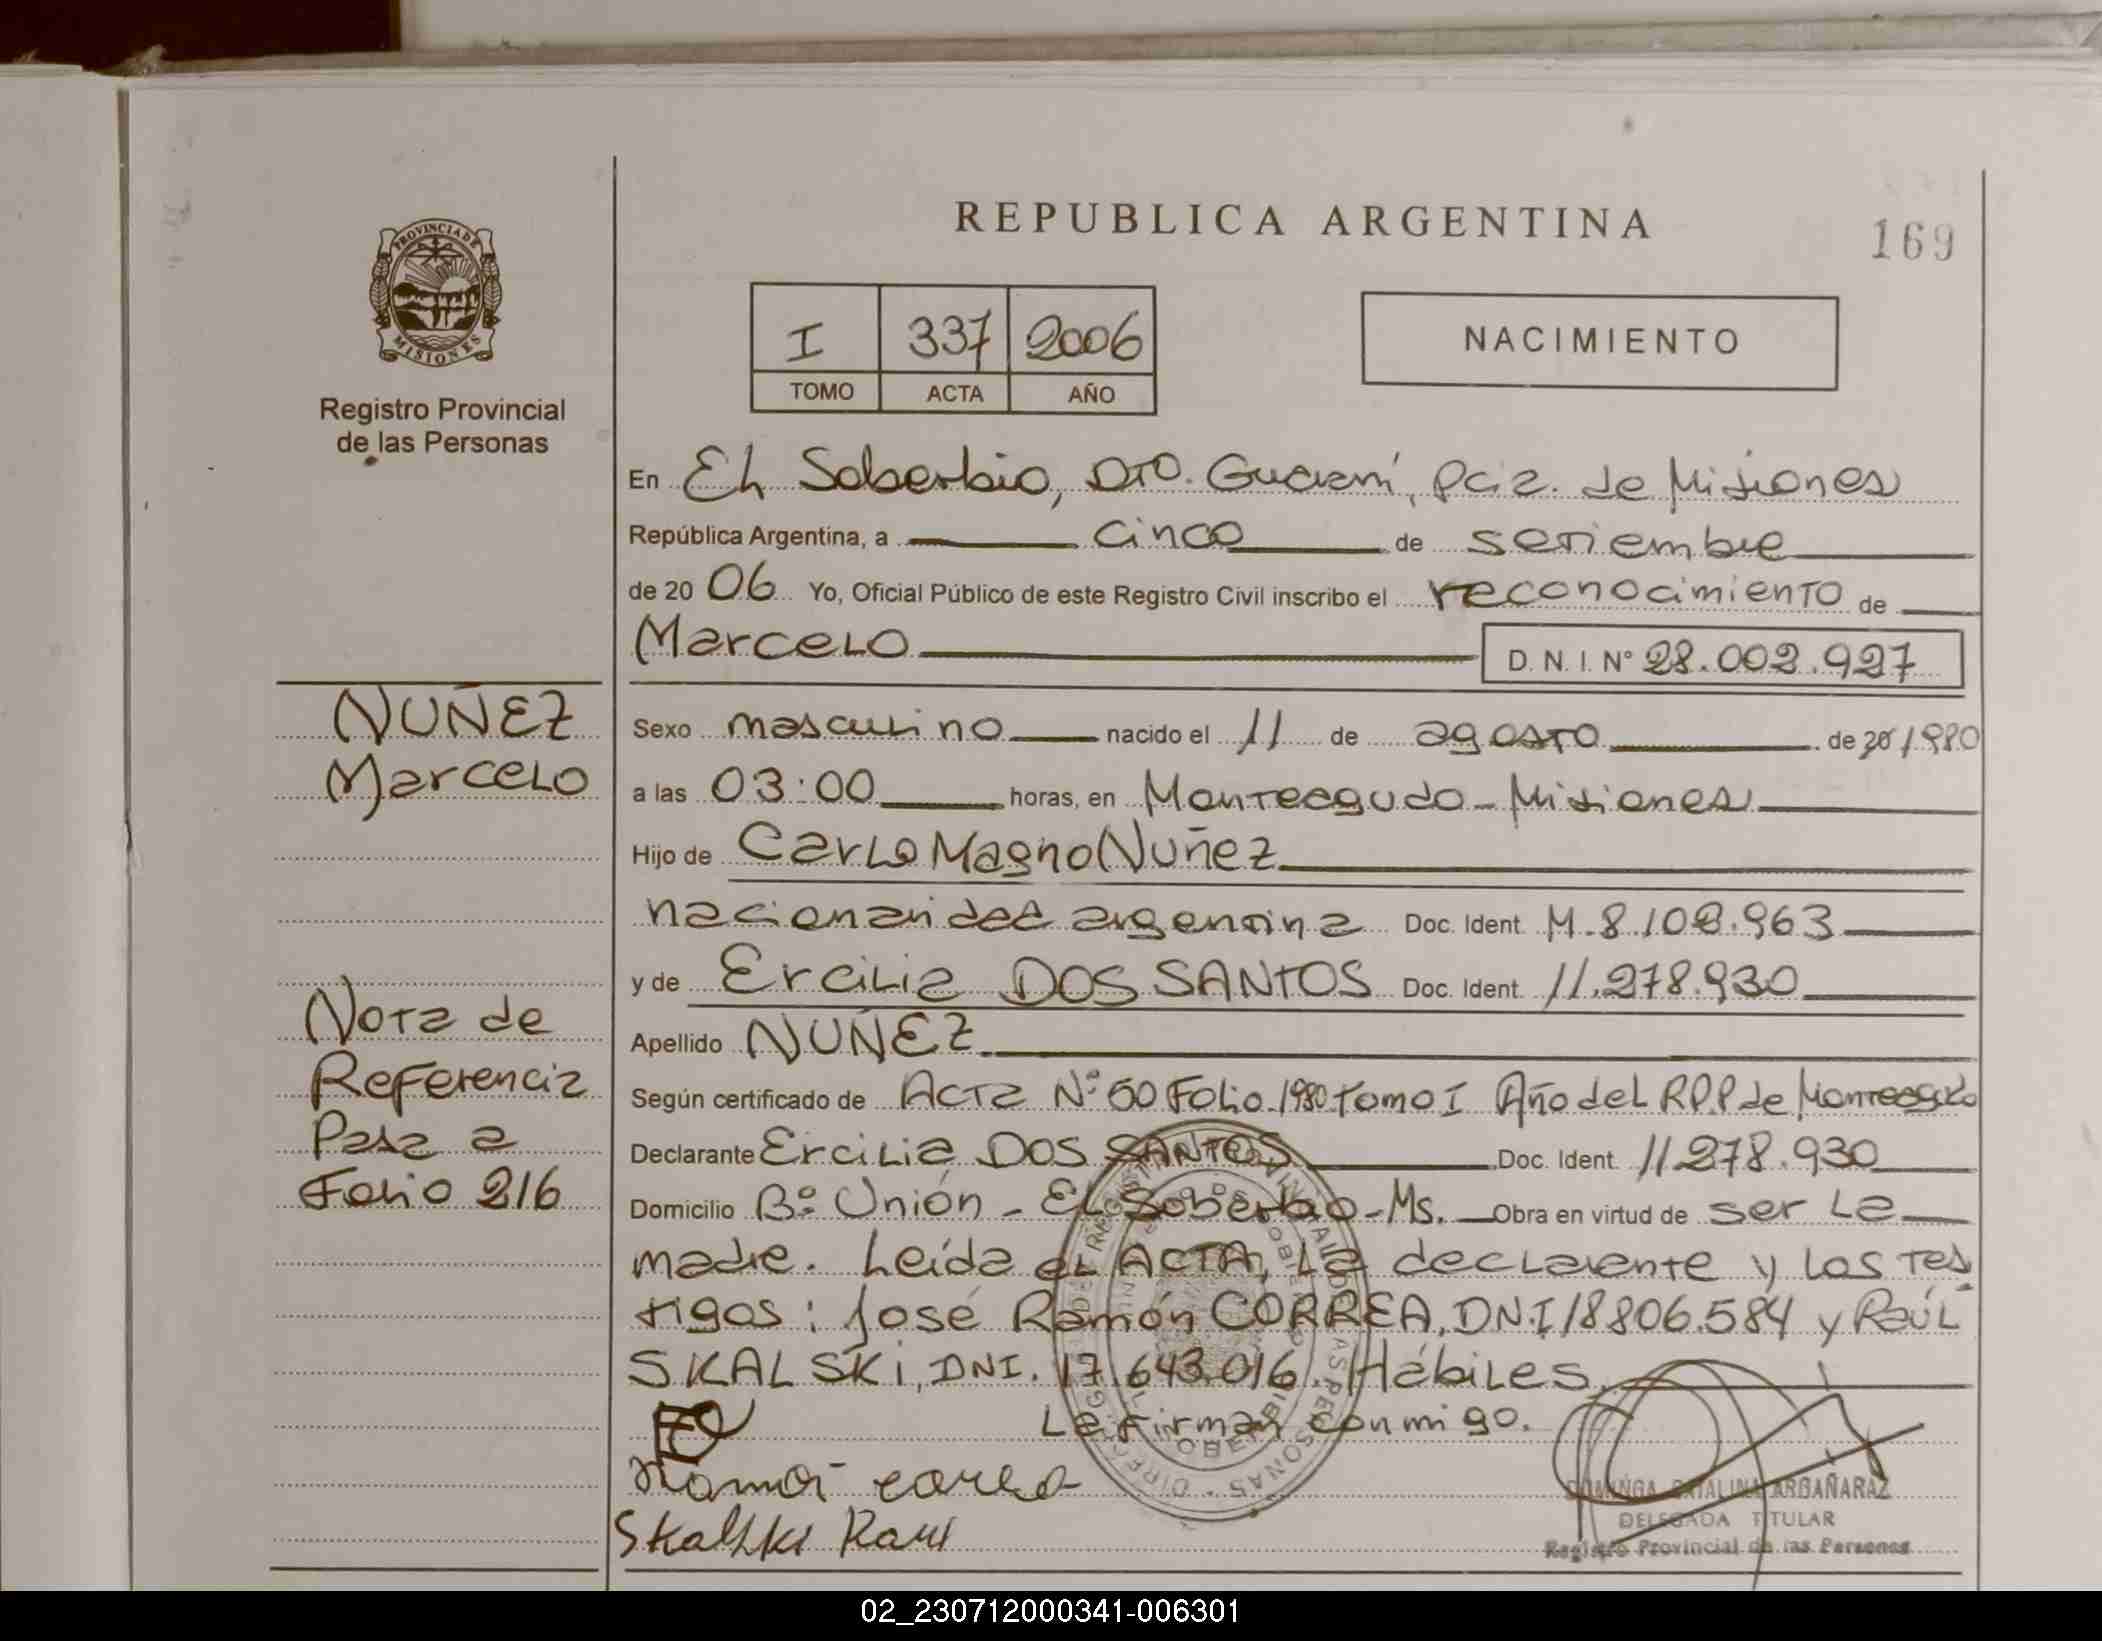 REPUBLICA ARGENTINA
169
PROVINCIA DE
MISIONES
Registro Provincial
de las Personas
I 337 2006
TOMO ACTA AÑO
NACIMIENTO
En El Soberbio, Dto. Guaraní, Pcia. de Misiones
República Argentina, a cinco de setiembre
de 20 06 Yo, Oficial Público de este Registro Civil inscribo el reconocimiento de
Marcelo D. N. I. Nº 28.002.927
NUÑEZ
Marcelo
Sexo masculino nacido el 11 de agosto de 20 1980
a las 03:00 horas, en Monteagudo - Misiones
Hijo de Carlo Magno Nuñez
nacionalidad argentina Doc. Ident. M. 8.108.963
y de Ercilia DOS SANTOS Doc. Ident. 11.278.930
Apellido NUÑEZ
Según certificado de Acta Nº 50 Folio 1980 Tomo I Año del R.P.P de Monteagudo
Declarante Ercilia DOS SANTOS Doc. Ident. 11.278.930
Domicilio Bº Unión - El Soberbio - Ms. Obra en virtud de ser la
madre. Leída el ACTA, la declarante y los tes
tigos: José Ramón CORREA, DNI 18.806.584 y Raúl
SKALSKi, DNI. 17.643.016. Hábiles.
La firman conmigo.
Nota de
Referencia
Pasa a
Folio 216
Ramon correa
Skalski Raul
DOMINGA CATALINA ARGAÑARAZ
DELEGADA TITULAR
Registro Provincial de las Personas
02_230712000341-006301